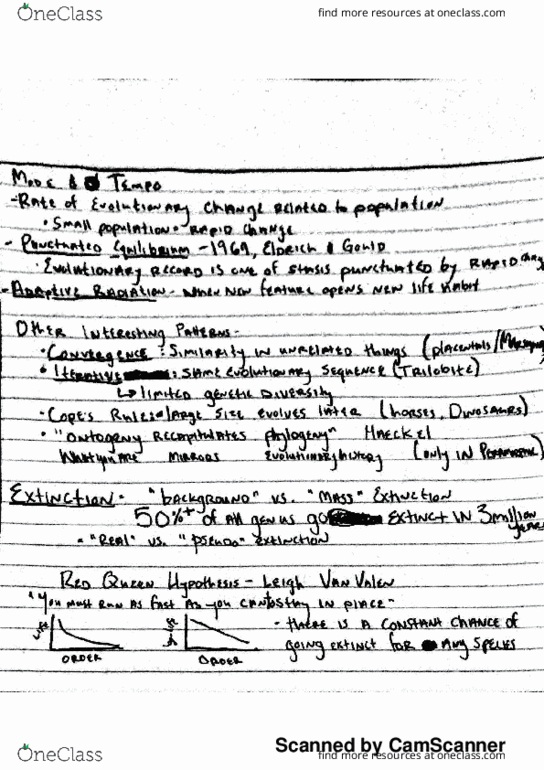 OneClass
find more resources at oneclass.com
Mode & Tempo
- Rate of Evolutionary Change Related to population
• Small population = Rapid Change
- Punctuated Equilibrium - 1969, Eldrich & Gould
• Evolutionary Record is one of stasis punctuated by Rapid change
- Adaptive Radiation - When new feature opens new life habit
Other Interesting Patterns -
• Convergence : Similarity in unrelated things (placentals/Marsupials
• Iterative : Same evolutionary sequence (Trilobite)
↳ limited genetic diversity
• Cope's Rule = large size evolves later (horses, Dinosaurs)
• "Ontogeny Recapitulates phylogeny" Haeckel
What you are mirrors evolutionary history (only in
Extinction - "background" vs. "Mass" Extinction
50%+ of all genus go extinct in 3 million years
• "Real" vs. "pseudo" extinction
Red Queen Hypothesis - Leigh Van Valen
"You must run as fast as you can to stay in place -
- there is a constant chance of
going extinct for any species
ORDER
ORDER
Scanned by CamScanner
OneClass
find more resources at oneclass.com